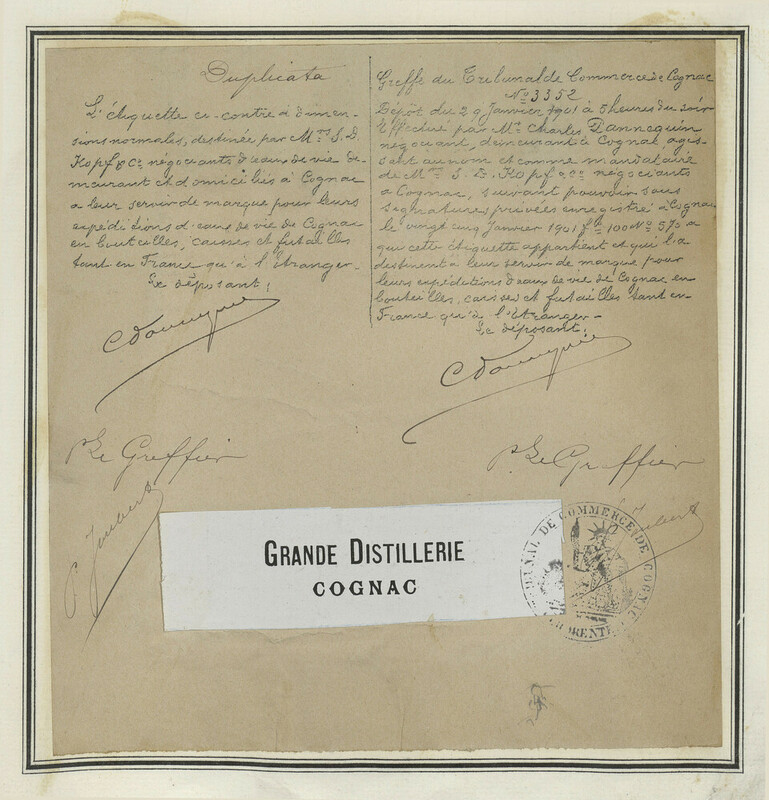 Duplicata
L'étiquette ci-contre à dimen-
sions normales, destinée par Mrs S. D.
Kopf & Co négociants d'eaux de vie de-
meurant et domiciliés à Cognac
a leur servir de marque pour leurs
expéditions d'eaux de vie de Cognac
en bouteilles, caisses et futailles
tant en France qu'à l'étranger-
Le déposant:
P. Le Greffier
P. Joubert
Greffe du Tribunal de Commerce de Cognac
No 3352
Dépôt du 29 Janvier 1901 à 5 heures du soir
Effectué par Mr Charles Dannequin
négociant, demeurant à Cognac, agis-
sant au nom et comme mandataire
de Mrs S. D. Kopf & Co négociants
a Cognac, suivant pouvoir sous
signatures privées enregistré à Cognac
le vingt cinq Janvier 1901 fo 100 No 573 a
qui cette étiquette appartient et qui l'a
destinent à leur servir de marque pour
leurs expéditions d'eaux de vie de Cognac en
bouteilles, caisses et futailles tant en
France qu'à l'Etranger-
Le déposant:
P. Le Greffier
Joubert
GRANDE DISTILLERIE
COGNAC
TRIBUNAL DE COMMERCE DE COGNAC
CHARENTE